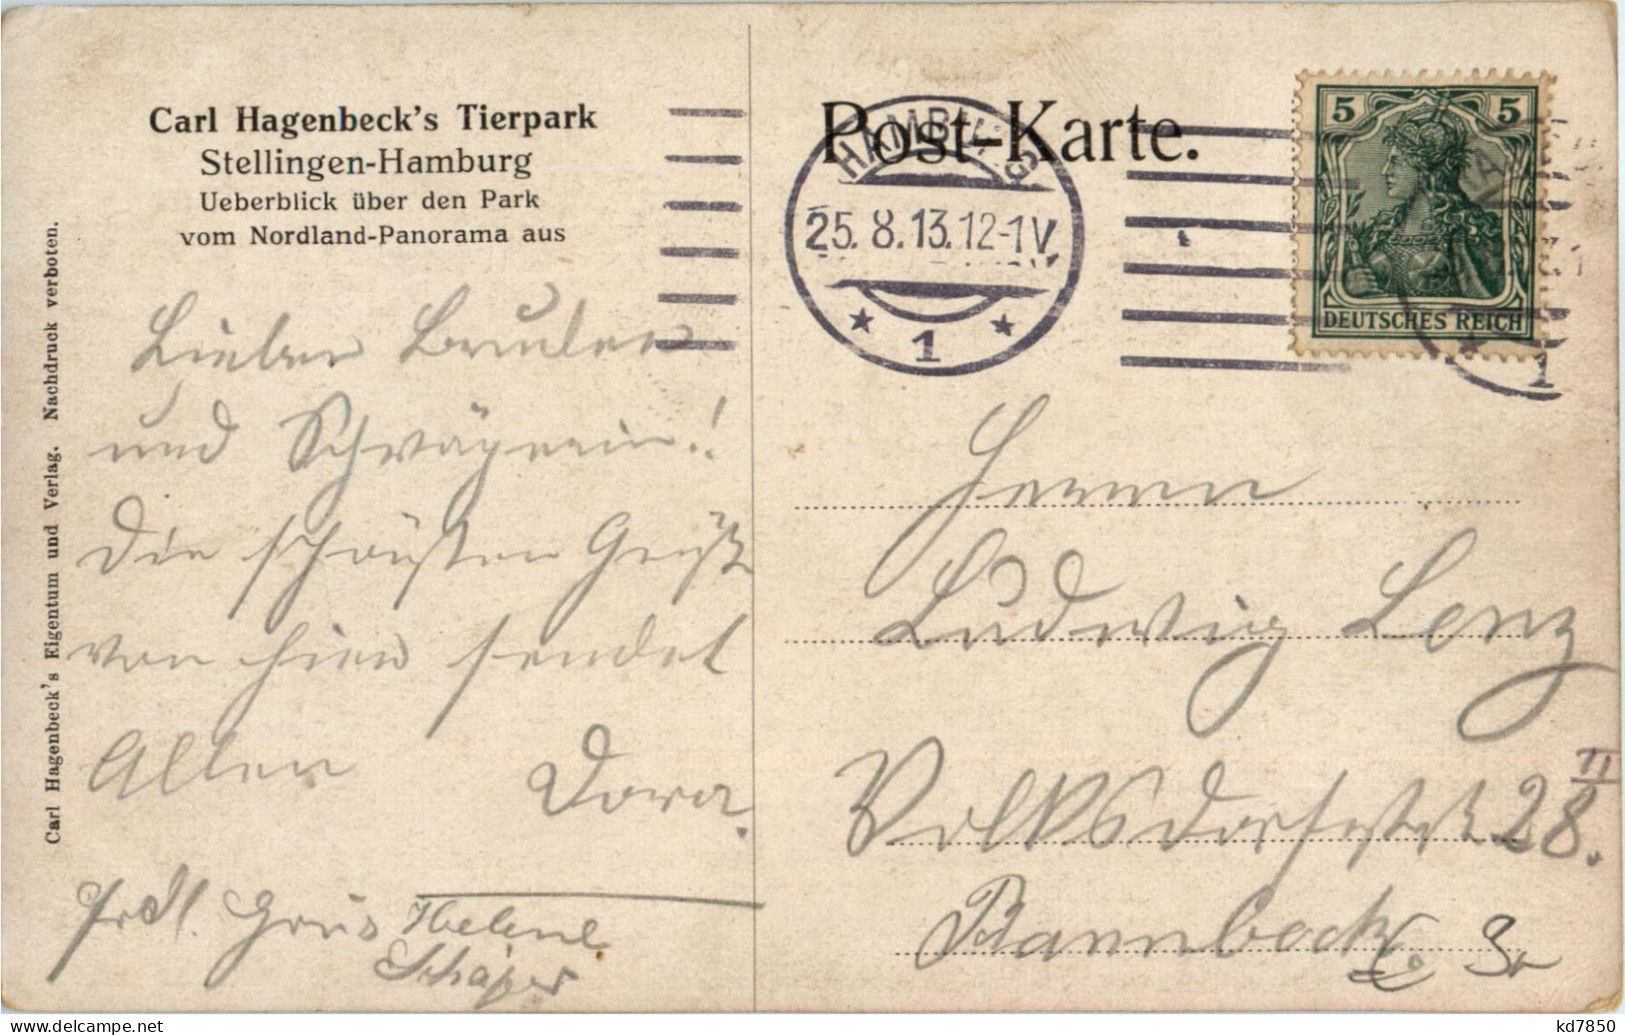 Carl Hagenbeck's Tierpark
Stellingen-Hamburg
Ueberblick über den Park
vom Nordland-Panorama aus
Carl Hagenbeck's Eigentum und Verlag. Nachdruck verboten.
Lieber Bruder
und Schwägerin!
Die schönsten Grüße
von hier sendet
Allen Dora.
Frdl. Grus Helene
Schäper
Post-Karte.
HAMBURG
25.8.13.12-1V.
1
5 5
DEUTSCHES REICH
1
Herrn
Ludwig Lenz
Volksdorferstr 28 II.
Barmbeck